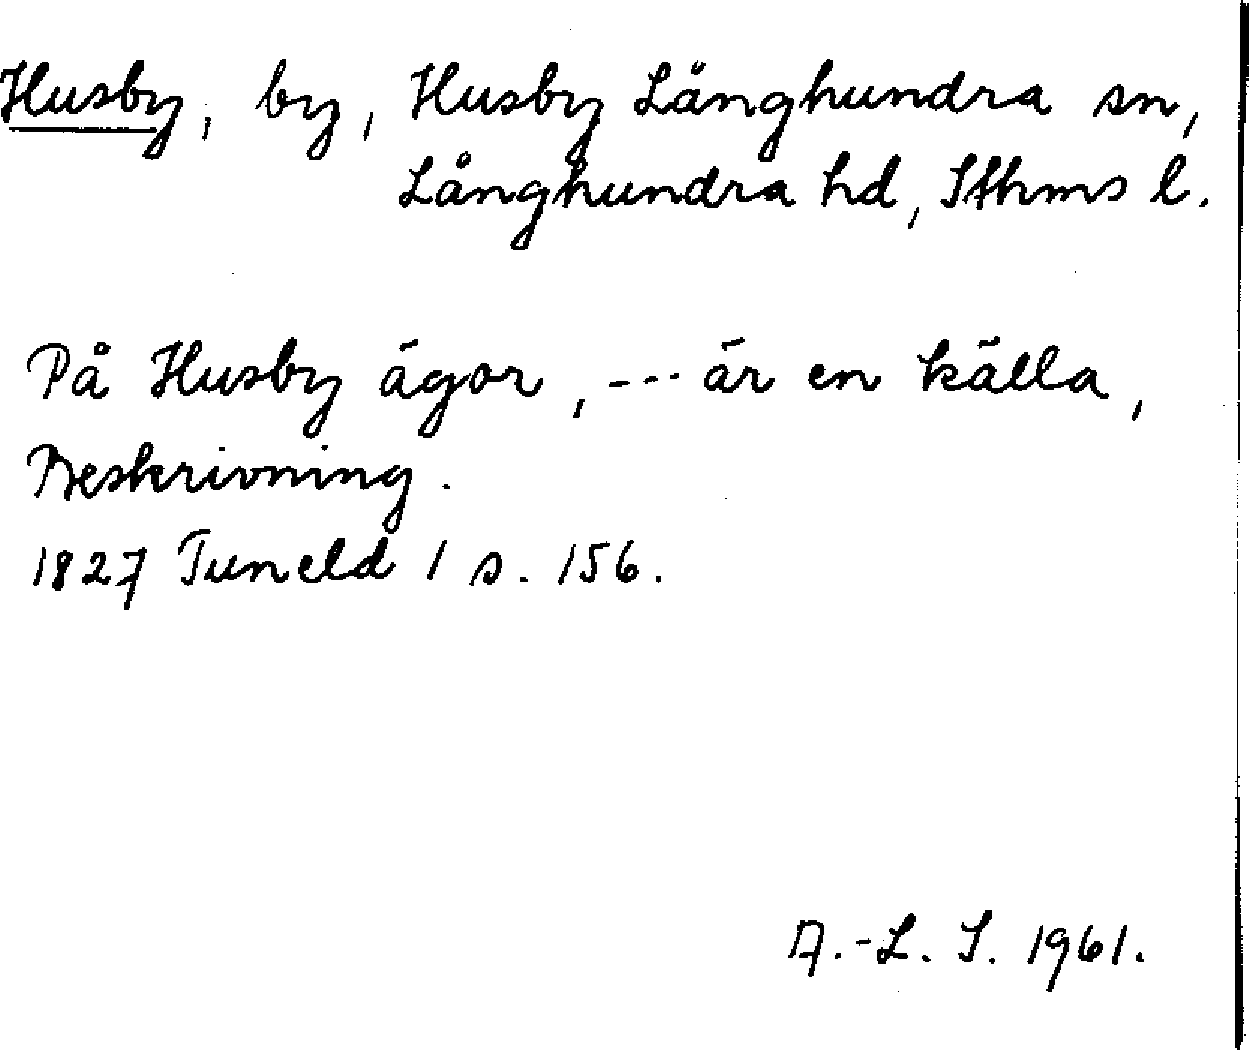 Husby, by, Husby Långhundra sn,
Långhundra hd, Sthms l.
På Husby ägor, --- är en källa,
Beskrivning.
1827 Tuneld 1 s. 156.
A.-L. S. 1961.